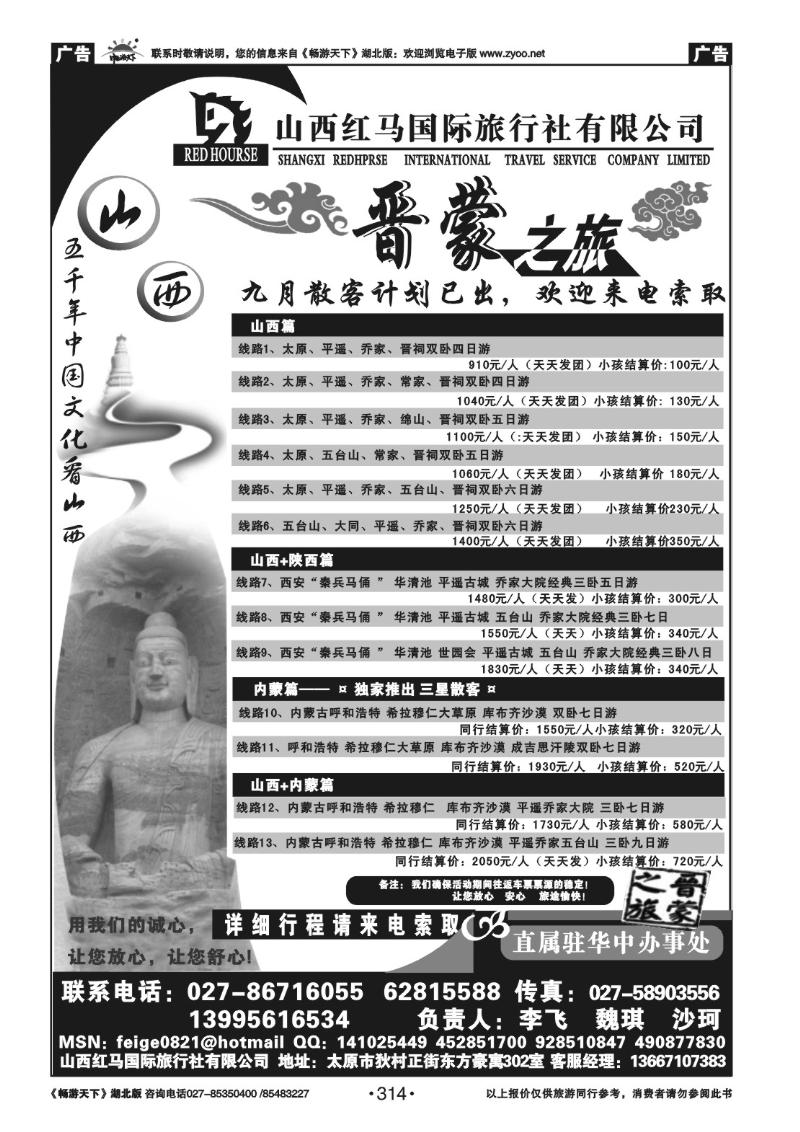 广告 畅游天下 联系时敬请说明，您的信息来自《畅游天下》湖北版；欢迎浏览电子版 www.zyoo.net 广告
山西红马国际旅行社有限公司
RED HOURSE SHANGXI REDHPRSE INTERNATIONAL TRAVEL SERVICE COMPANY LIMITED
山西
五千年中国文化看山西
晋蒙之旅
九月散客计划已出，欢迎来电索取
山西篇
线路1、太原、平遥、乔家、晋祠双卧四日游
910元/人（天天发团）小孩结算价:100元/人
线路2、太原、平遥、乔家、常家、晋祠双卧四日游
1040元/人（天天发团）小孩结算价: 130元/人
线路3、太原、平遥、乔家、绵山、晋祠双卧五日游
1100元/人（:天天发团） 小孩结算价：150元/人
线路4、太原、五台山、常家、晋祠双卧五日游
1060元/人（天天发团） 小孩结算价 180元/人
线路5、太原、平遥、乔家、五台山、晋祠双卧六日游
1250元/人（天天发团） 小孩结算价230元/人
线路6、五台山、大同、平遥、乔家、晋祠双卧六日游
1400元/人（天天发团） 小孩结算价350元/人
山西+陕西篇
线路7、西安“秦兵马俑 ” 华清池 平遥古城 乔家大院经典三卧五日游
1480元/人（天天发）小孩结算价：300元/人
线路8、西安“秦兵马俑 ” 华清池 平遥古城 五台山 乔家大院经典三卧七日
1550元/人（天天）小孩结算价：340元/人
线路9、西安“秦兵马俑 ” 华清池 世园会 平遥古城 五台山 乔家大院经典三卧八日
1830元/人（天天）小孩结算价:340元/人
内蒙篇—— ¤ 独家推出 三星散客 ¤
线路10、内蒙古呼和浩特 希拉穆仁大草原 库布齐沙漠 双卧七日游
同行结算价：1550元/人小孩结算价：320元/人
线路11、呼和浩特 希拉穆仁大草原 库布齐沙漠 成吉思汗陵双卧七日游
同行结算价：1930元/人 小孩结算价：520元/人
山西+内蒙篇
线路12、内蒙古呼和浩特 希拉穆仁 库布齐沙漠 平遥乔家大院 三卧七日游
同行结算价：1730元/人 小孩结算价：580元/人
线路13、内蒙古呼和浩特 希拉穆仁 库布齐沙漠 平遥乔家五台山 三卧九日游
同行结算价：2050元/人（天天发）小孩结算价：720元/人
备注：我们确保活动期间往返车票票源的稳定！
让您放心 安心 旅途愉快！
晋蒙之旅
用我们的诚心， 详细行程请来电索取
让您放心，让您舒心! 直属驻华中办事处
联系电话：027-86716055 62815588 传真：027-58903556
13995616534 负责人：李飞 魏琪 沙珂
MSN：feige0821@hotmail QQ：141025449 452851700 928510847 490877830
山西红马国际旅行社有限公司 地址：太原市狄村正街东方豪寓302室 客服经理：13667107383
《畅游天下》湖北版 咨询电话027-85350400 /85483227 ·314· 以上报价仅供旅游同行参考，消费者请勿参阅此书